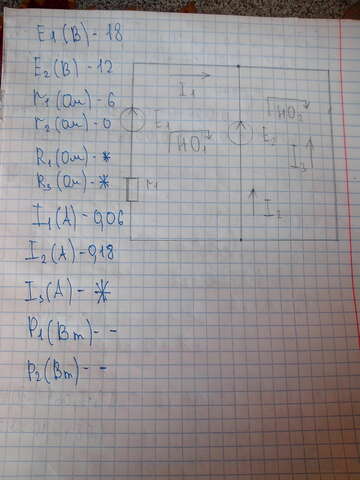 E1(В) - 18
E2(В) - 12
r1(Ом) - 6
r2(Ом) - 0
R1(Ом) - *
R3(Ом) - *
I1(А) - 0,06
I2(А) - 0,18
I3(А) - *
P1(Вт) - -
P2(Вт) - -
I1
E1
НО1
r1
НО2
E2
I3
I2